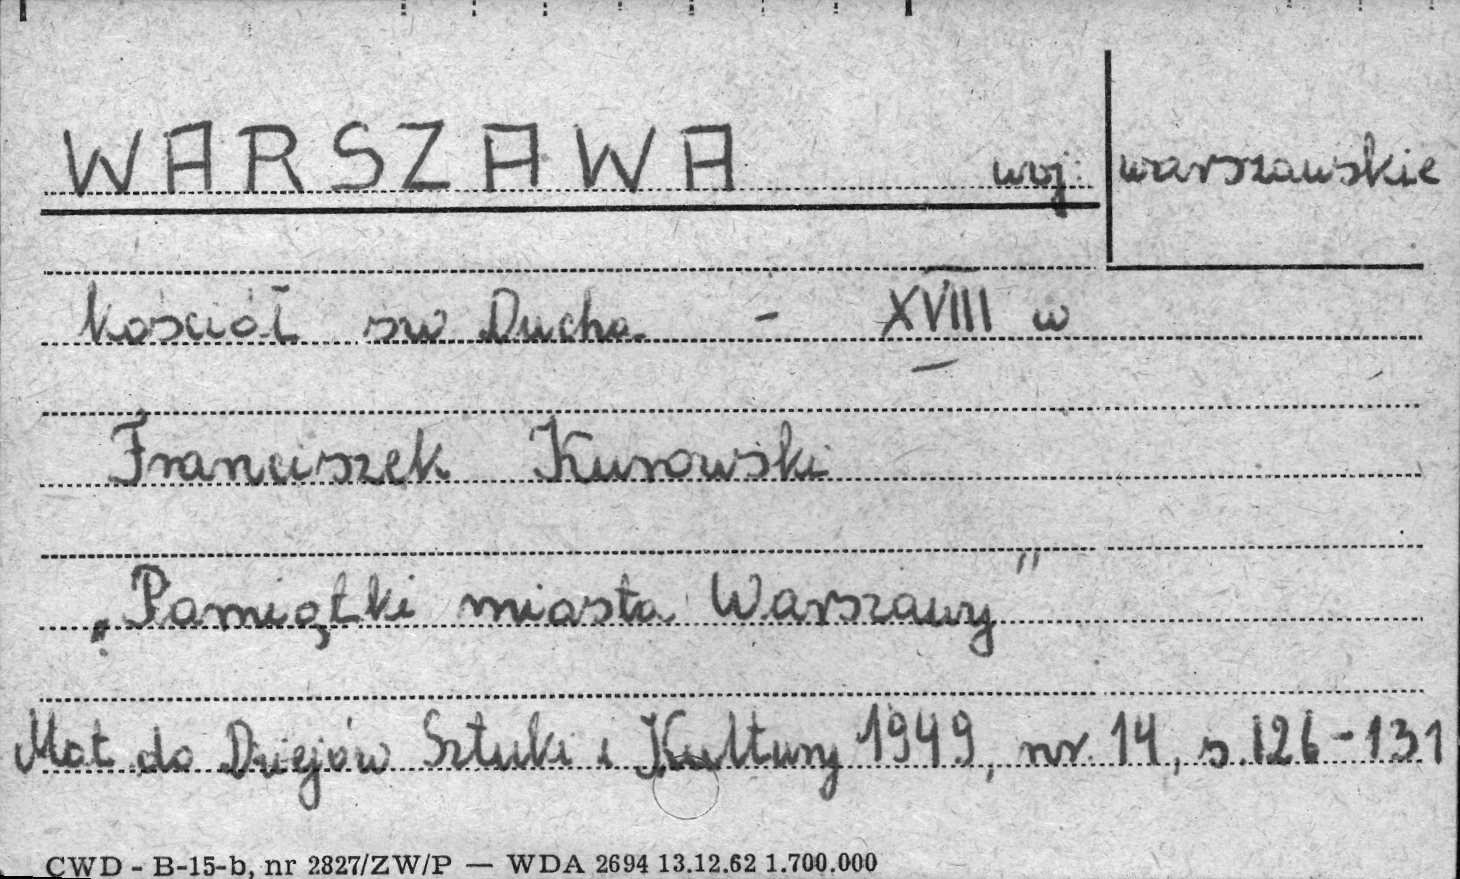 WARSZAWA woj: warszawskie
kościół św Ducha - XVIII w
Franciszek Kurowski
„Pamiątki miasta Warszawy"
Mat do Dziejów Sztuki i Kultury 1949, nr. 14, s. 126-131
CWD - B-15-b, nr 2827/ZW/P — WDA 2694 13.12.62 1.700.000